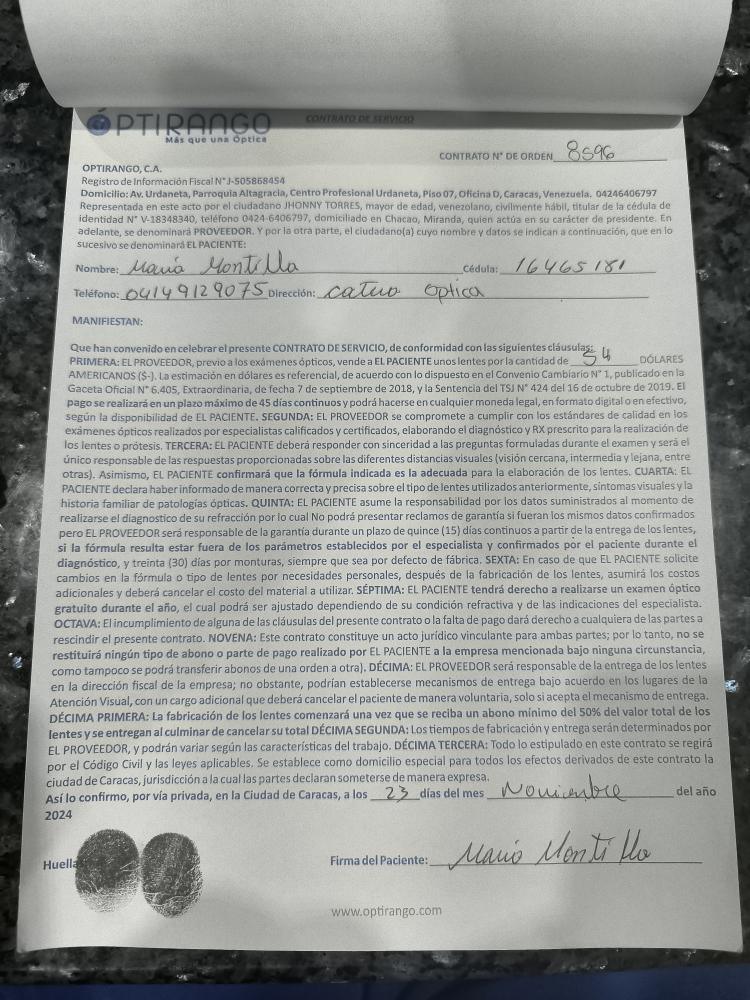 ÓPTIRANGO
Más que una Óptica
CONTRATO DE SERVICIO
CONTRATO N° DE ORDEN 8596
OPTIRANGO, C.A.
Registro de Información Fiscal N°J-505868454
Domicilio: Av. Urdaneta, Parroquia Altagracia, Centro Profesional Urdaneta, Piso 07, Oficina D, Caracas, Venezuela. 04246406797
Representada en este acto por el ciudadano JHONNY TORRES, mayor de edad, venezolano, civilmente hábil, titular de la cédula de
identidad N° V-18348340, teléfono 0424-6406797, domiciliado en Chacao, Miranda, quien actúa en su carácter de presidente. En
adelante, se denominará PROVEEDOR. Y por la otra parte, el ciudadano(a) cuyo nombre y datos se indican a continuación, que en lo
sucesivo se denominará EL PACIENTE:
Nombre: Maria Montilla Cédula: 16465181
Teléfono: 04149129075 Dirección: catuo optica
MANIFIESTAN:
Que han convenido en celebrar el presente CONTRATO DE SERVICIO, de conformidad con las siguientes cláusulas:
PRIMERA: EL PROVEEDOR, previo a los exámenes ópticos, vende a EL PACIENTE unos lentes por la cantidad de 54 DÓLARES
AMERICANOS ($-). La estimación en dólares es referencial, de acuerdo con lo dispuesto en el Convenio Cambiario N° 1, publicado en la
Gaceta Oficial N° 6.405, Extraordinaria, de fecha 7 de septiembre de 2018, y la Sentencia del TSJ N° 424 del 16 de octubre de 2019. El
pago se realizará en un plazo máximo de 45 días continuos y podrá hacerse en cualquier moneda legal, en formato digital o en efectivo,
según la disponibilidad de EL PACIENTE. SEGUNDA: EL PROVEEDOR se compromete a cumplir con los estándares de calidad en los
exámenes ópticos realizados por especialistas calificados y certificados, elaborando el diagnóstico y RX prescrito para la realización de
los lentes o prótesis. TERCERA: EL PACIENTE deberá responder con sinceridad a las preguntas formuladas durante el examen y será el
único responsable de las respuestas proporcionadas sobre las diferentes distancias visuales (visión cercana, intermedia y lejana, entre
otras). Asimismo, EL PACIENTE confirmará que la fórmula indicada es la adecuada para la elaboración de los lentes. CUARTA: EL
PACIENTE declara haber informado de manera correcta y precisa sobre el tipo de lentes utilizados anteriormente, síntomas visuales y la
historia familiar de patologías ópticas. QUINTA: EL PACIENTE asume la responsabilidad por los datos suministrados al momento de
realizarse el diagnostico de su refracción por lo cual No podrá presentar reclamos de garantía si fueran los mismos datos confirmados
pero EL PROVEEDOR será responsable de la garantía durante un plazo de quince (15) días continuos a partir de la entrega de los lentes,
si la fórmula resulta estar fuera de los parámetros establecidos por el especialista y confirmados por el paciente durante el
diagnóstico, y treinta (30) días por monturas, siempre que sea por defecto de fábrica. SEXTA: En caso de que EL PACIENTE solicite
cambios en la fórmula o tipo de lentes por necesidades personales, después de la fabricación de los lentes, asumirá los costos
adicionales y deberá cancelar el costo del material a utilizar. SÉPTIMA: EL PACIENTE tendrá derecho a realizarse un examen óptico
gratuito durante el año, el cual podrá ser ajustado dependiendo de su condición refractiva y de las indicaciones del especialista.
OCTAVA: El incumplimiento de alguna de las cláusulas del presente contrato o la falta de pago dará derecho a cualquiera de las partes a
rescindir el presente contrato. NOVENA: Este contrato constituye un acto jurídico vinculante para ambas partes; por lo tanto, no se
restituirá ningún tipo de abono o parte de pago realizado por EL PACIENTE a la empresa mencionada bajo ninguna circunstancia,
como tampoco se podrá transferir abonos de una orden a otra). DÉCIMA: EL PROVEEDOR será responsable de la entrega de los lentes
en la dirección fiscal de la empresa; no obstante, podrían establecerse mecanismos de entrega bajo acuerdo en los lugares de la
Atención Visual, con un cargo adicional que deberá cancelar el paciente de manera voluntaria, solo si acepta el mecanismo de entrega.
DÉCIMA PRIMERA: La fabricación de los lentes comenzará una vez que se reciba un abono mínimo del 50% del valor total de los
lentes y se entregan al culminar de cancelar su total DÉCIMA SEGUNDA: Los tiempos de fabricación y entrega serán determinados por
EL PROVEEDOR, y podrán variar según las características del trabajo. DÉCIMA TERCERA: Todo lo estipulado en este contrato se regirá
por el Código Civil y las leyes aplicables. Se establece como domicilio especial para todos los efectos derivados de este contrato la
ciudad de Caracas, jurisdicción a la cual las partes declaran someterse de manera expresa.
Así lo confirmo, por vía privada, en la Ciudad de Caracas, a los 23 días del mes Noviembre del año
2024
Huella
Firma del Paciente: Maria Montilla
www.optirango.com